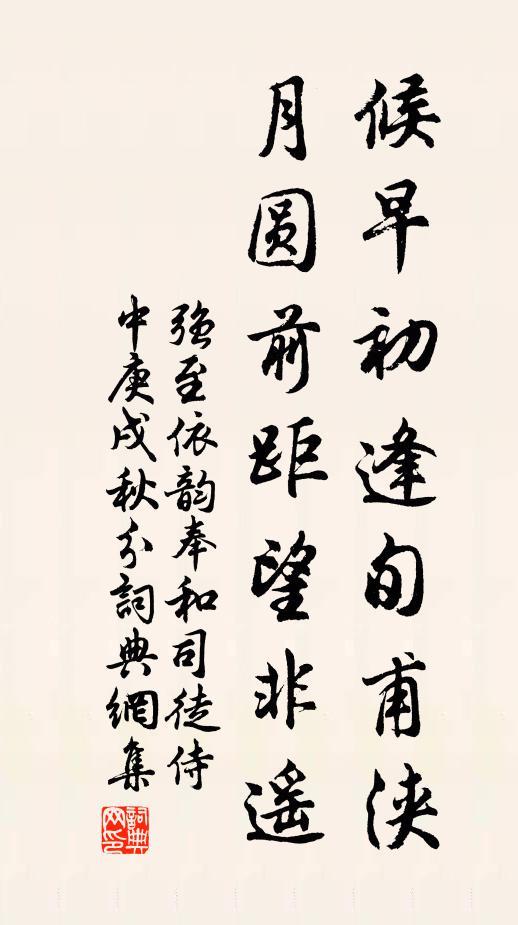 候早初逢旬甫浹
月圆前距望非遥
強至依韵奉和司徒侍
中庚戌秋分詞典網集
詞典网印